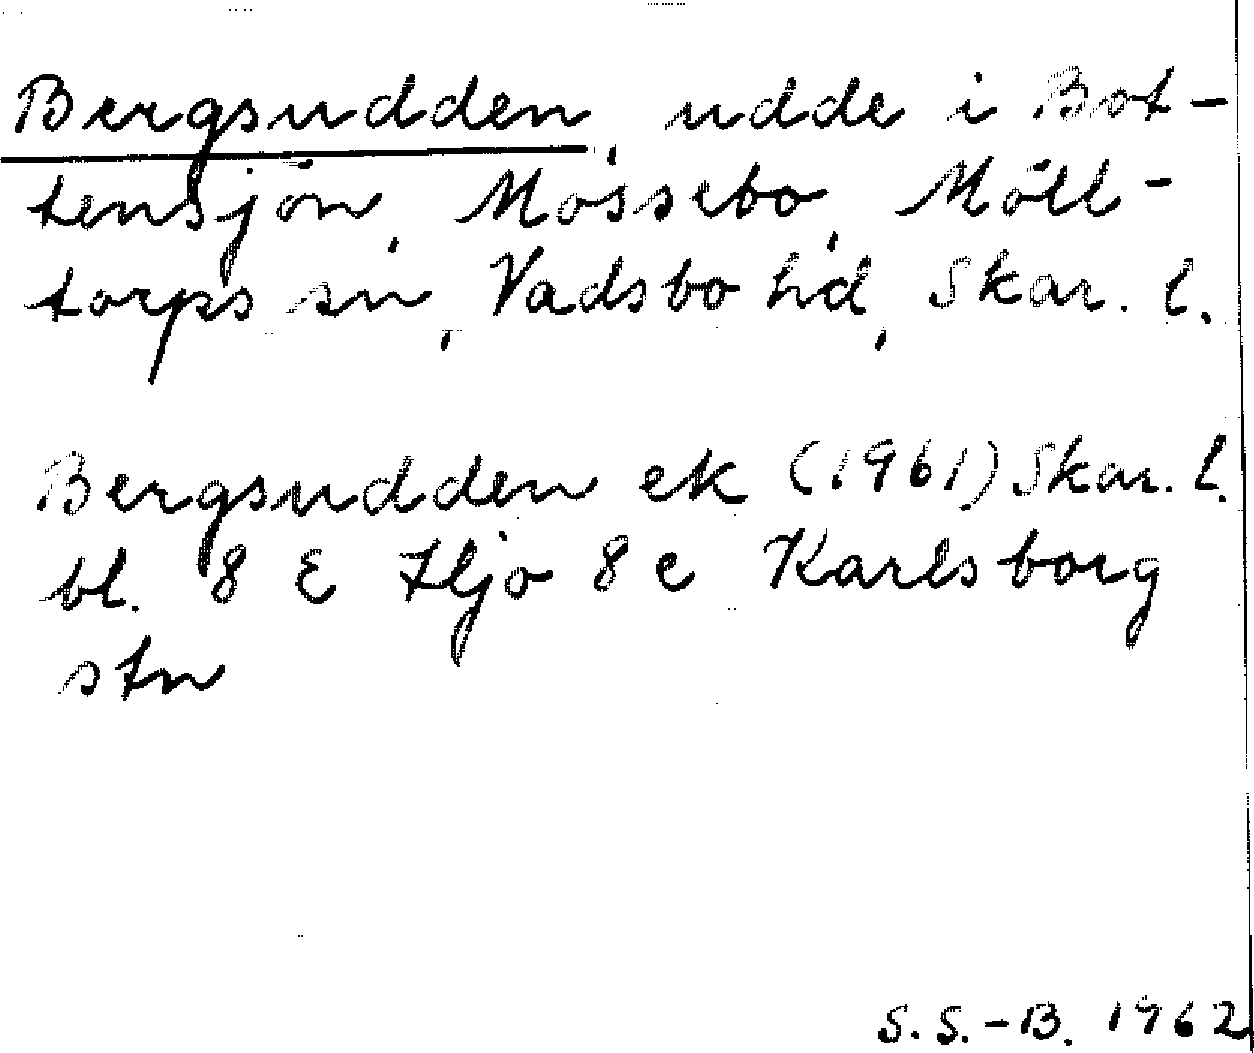 Bergsudden, udde i Bot-
tensjön, Mossebo, Möll-
torps sn, Vadsbo hd, Skar. l.
Bergsudden ek (1961) Skar. l.
bl. 8 E Hjo 8 e Karlsborg
stn
S. S.-B. 1962